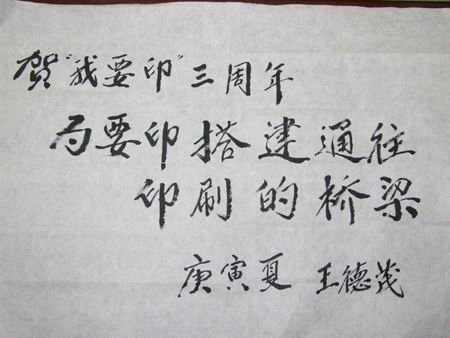 贺"我要印"三周年
为要印搭建通往
印刷的桥梁
庚寅夏 王德茂